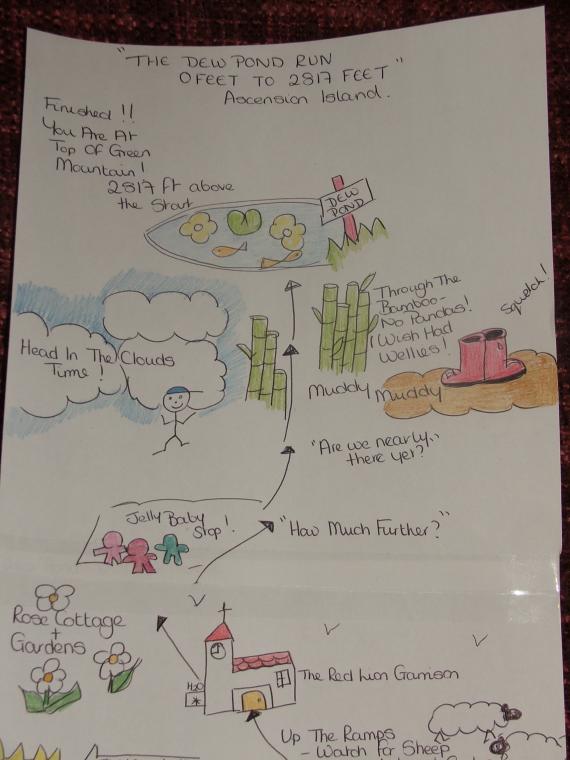 "THE DEW POND RUN
0 FEET TO 2817 FEET"
Ascension Island.
Finished!!
You Are At
Top Of Green
Mountain!
2817 ft above
the Start
DEW
POND
Through The
Bamboo-
No Pandas!
Wish Had
Wellies!
Squelch!
Head In The Clouds
Time!
Muddy Muddy
"Are we nearly
there yet?"
Jelly Baby
Stop!
"How Much Further?"
Rose Cottage
+
Gardens
H2O
The Red Lion Garrison
Up The Ramps
- Watch for Sheep